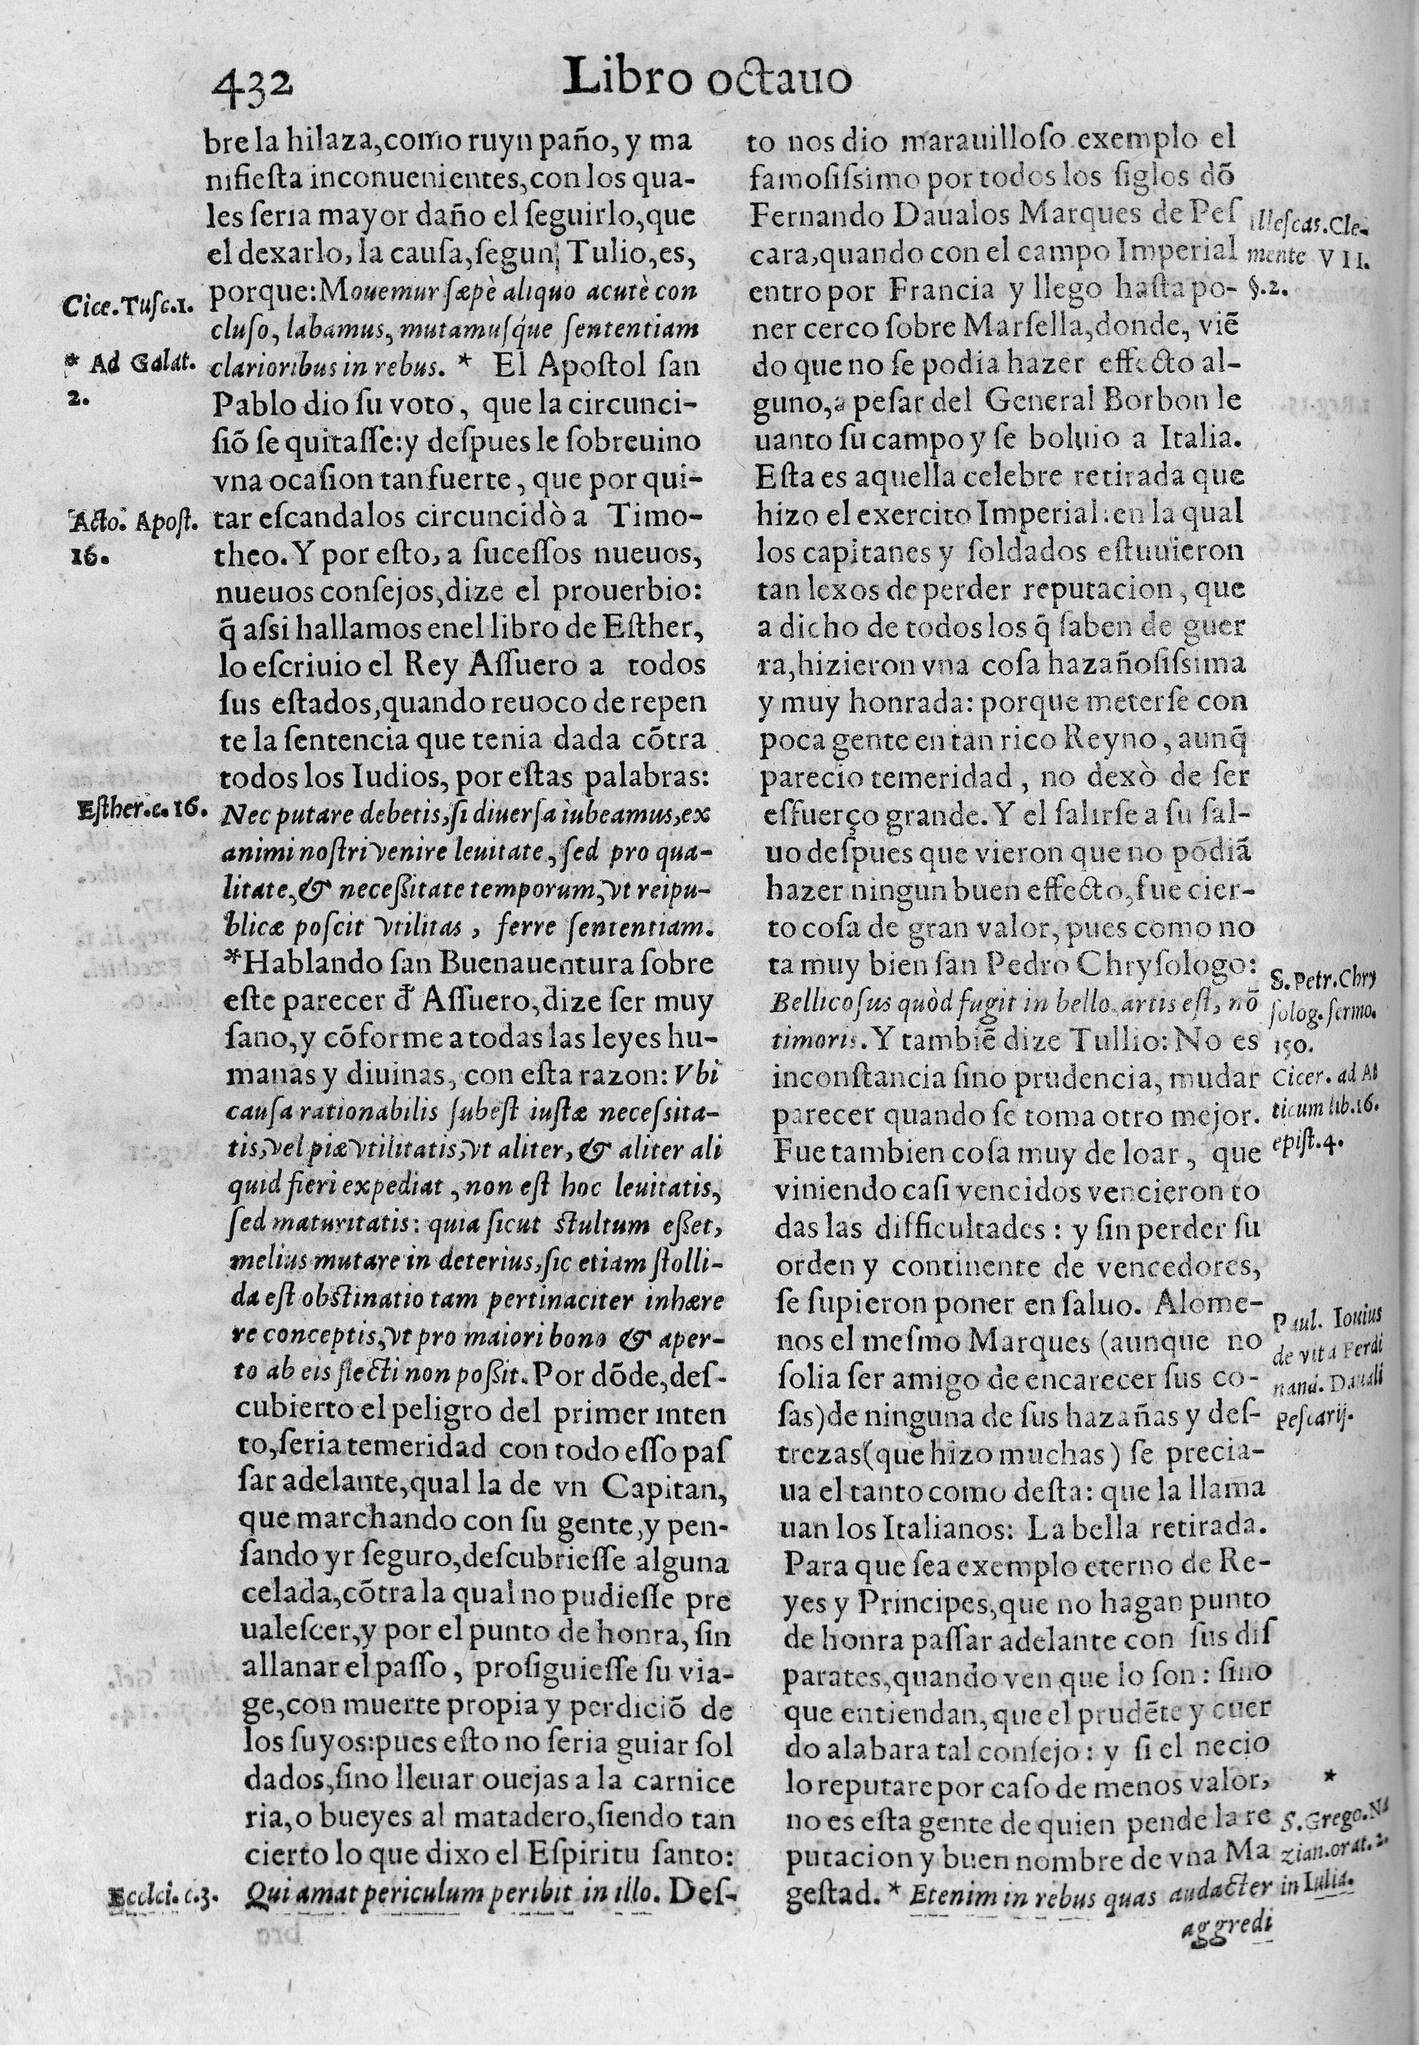 432
Libro octauo
bre la hilaza, como ruyn paño, y ma
nifiesta inconuenientes, con los qua-
les seria mayor daño el seguirlo, que
el dexarlo, la causa, segun Tulio, es,
porque: Mouemur sæpè aliquo acutè con
cluso, labamus, mutamusq́ue sententiam
clarioribus in rebus. * El Apostol san
Pablo dio su voto, que la circunci-
siõ se quitasse: y despues le sobreuino
vna ocasion tan fuerte, que por qui-
tar escandalos circuncidò a Timo-
theo. Y por esto, a sucessos nueuos,
nueuos consejos, dize el prouerbio:
q̃ assi hallamos enel libro de Esther,
lo escriuio el Rey Assuero a todos
sus estados, quando reuoco de repen
te la sentencia que tenia dada cõtra
todos los Iudios, por estas palabras:
Nec putare debetis, si diuersa iubeamus, ex
animi nostri venire leuitate, sed pro qua-
litate, & necessitate temporum, vt reipu-
blicæ poscit vtilitas, ferre sententiam.
*Hablando san Buenauentura sobre
este parecer đ Assuero, dize ser muy
sano, y cõforme a todas las leyes hu-
manas y diuinas, con esta razon: Vbi
causa rationabilis subest iustæ necessita-
tis, vel piæ vtilitatis, vt aliter, & aliter ali
quid fieri expediat, non est hoc leuitatis,
sed maturitatis: quia sicut stultum esset,
melius mutare in deterius, sic etiam stolli-
da est obstinatio tam pertinaciter inhære
re conceptis, vt pro maiori bono & aper-
to ab eis flecti non possit. Por dõde, des-
cubierto el peligro del primer inten
to, seria temeridad con todo esso pas
sar adelante, qual la de vn Capitan,
que marchando con su gente, y pen-
sando yr seguro, descubriesse alguna
celada, cõtra la qual no pudiesse pre
ualescer, y por el punto de honra, sin
allanar el passo, prosiguiesse su via-
ge, con muerte propia y perdiciõ de
los suyos: pues esto no seria guiar sol
dados, sino lleuar ouejas a la carnice
ria, o bueyes al matadero, siendo tan
cierto lo que dixo el Espiritu santo:
Qui amat periculum peribit in illo. Des-
Cice. Tusc. 1.
* Ad Galat.
2.
Acto. Apost.
16.
Esther. c. 16.
Eccles. c. 3.
to nos dio marauilloso exemplo el
famosissimo por todos los siglos dõ
Fernando Daualos Marques de Pes
cara, quando con el campo Imperial
entro por Francia y llego hasta po-
ner cerco sobre Marsella, donde, viẽ
do que no se podia hazer effecto al-
guno, a pesar del General Borbon le
uanto su campo y se boluio a Italia.
Esta es aquella celebre retirada que
hizo el exercito Imperial: en la qual
los capitanes y soldados estuuieron
tan lexos de perder reputacion, que
a dicho de todos los q̃ saben de guer
ra, hizieron vna cosa hazañosissima
y muy honrada: porque meterse con
poca gente en tan rico Reyno, aunq̃
parecio temeridad, no dexò de ser
esfuerço grande. Y el salirse a su sal-
uo despues que vieron que no podiã
hazer ningun buen effecto, fue cier-
to cosa de gran valor, pues como no
ta muy bien san Pedro Chrysologo:
Bellicosus quòd fugit in bello artis est, nõ
timoris. Y tambiẽ dize Tullio: No es
inconstancia sino prudencia, mudar
parecer quando se toma otro mejor.
Fue tambien cosa muy de loar, que
viniendo casi vencidos vencieron to
das las difficultades: y sin perder su
orden y continente de vencedores,
se supieron poner en saluo. Alome-
nos el mesmo Marques (aunque no
solia ser amigo de encarecer sus co-
sas) de ninguna de sus hazañas y des-
trezas (que hizo muchas) se precia-
ua el tanto como desta: que la llama
uan los Italianos: La bella retirada.
Para que sea exemplo eterno de Re-
yes y Principes, que no hagan punto
de honra passar adelante con sus dis
parates, quando ven que lo son: sino
que entiendan, que el prudẽte y cuer
do alabara tal consejo: y si el necio
lo reputare por caso de menos valor,
no es esta gente de quien pende la re
putacion y buen nombre de vna Ma
gestad. * Etenim in rebus quas audacter
aggredi
Illescas. Cle-
mente VII.
§. 2.
S. Petr. Chry
solog. sermo.
150.
Cicer. ad At
ticum lib. 16.
epist. 4.
Paul. Iouius
de vita Ferdi
nand. Dauali
Pescarij.
*
S. Grego. Na
zian. orat. 2.
in Iulia.